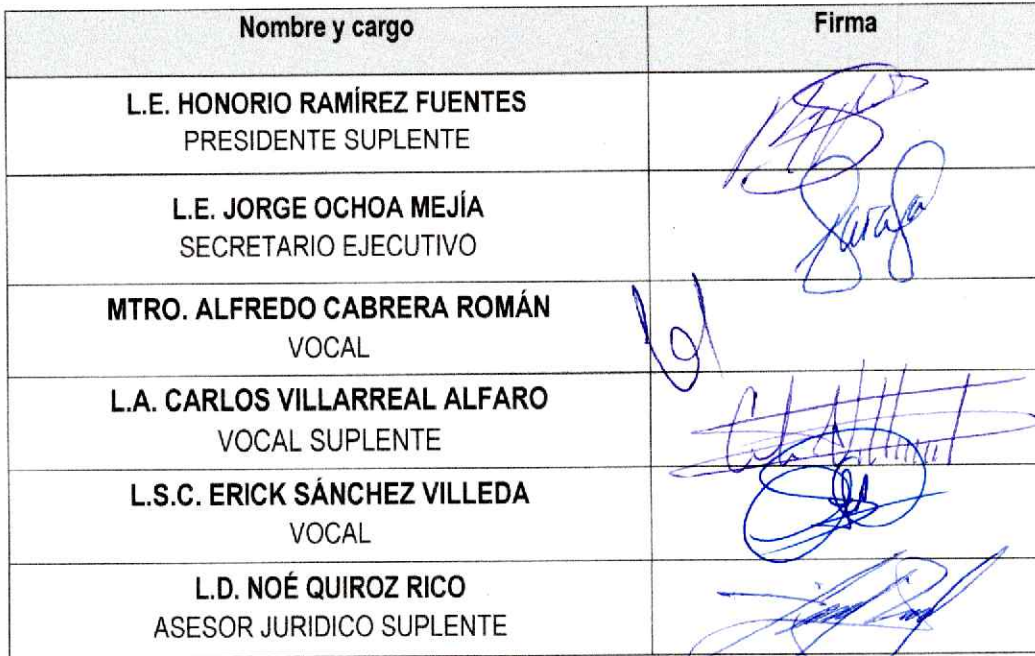 Nombre y cargo
Firma
L.E. HONORIO RAMÍREZ FUENTES
PRESIDENTE SUPLENTE
L.E. JORGE OCHOA MEJÍA
SECRETARIO EJECUTIVO
MTRO. ALFREDO CABRERA ROMÁN
VOCAL
L.A. CARLOS VILLARREAL ALFARO
VOCAL SUPLENTE
L.S.C. ERICK SÁNCHEZ VILLEDA
VOCAL
L.D. NOÉ QUIROZ RICO
ASESOR JURIDICO SUPLENTE